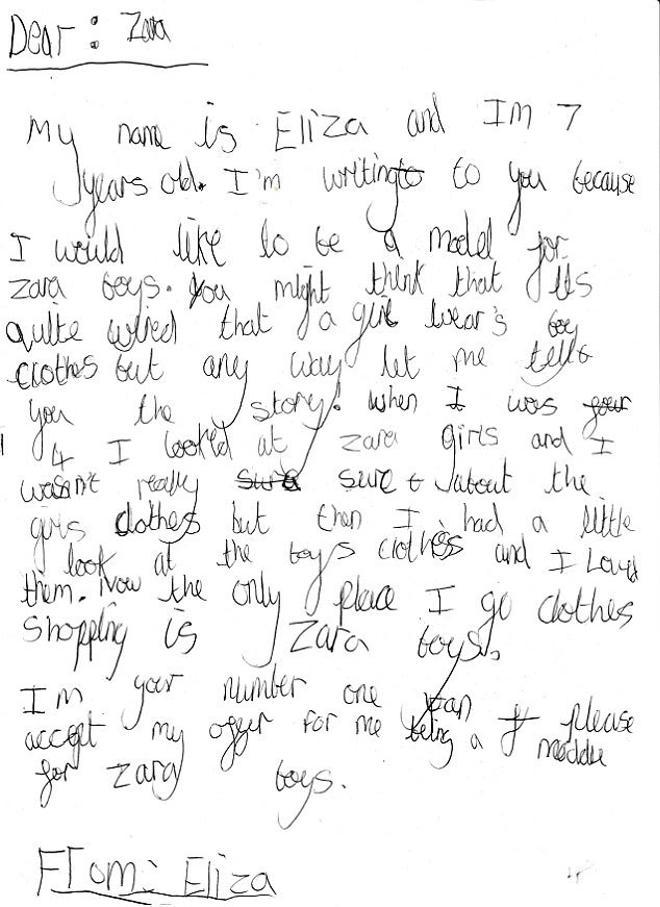 Dear: Zara
My name is Eliza and Im 7
years old. I'm writing to you because
I would like to be a model for
zara boys. You might think that its
quite wired that a girl wear's boy
clothes but any way let me tell
you the story! when I was your
4 I looked at zara girls and I
wasn't really sure sure about the
girls clothes but then I had a little
look at the boys clothes and I Loved
them. Now the only place I go clothes
shopping is Zara boys.
I'm your number one fan
accept my offer for me being a please
for zara boys. moddle
From: Eliza